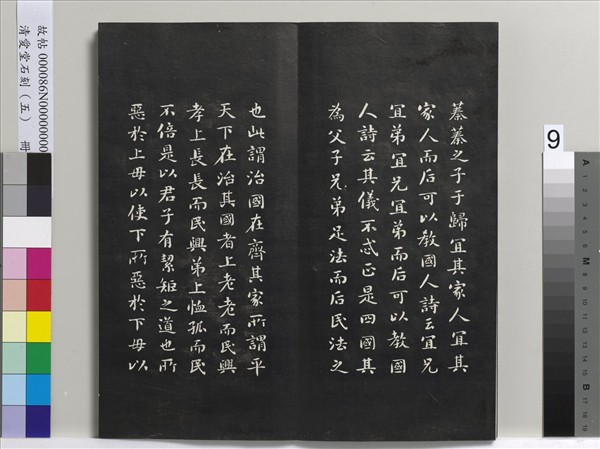 蓁蓁之子于歸宜其家人宜其
家人而后可以教國人詩云宜兄
宜弟宜兄宜弟而后可以教國
人詩云其儀不忒正是四國其
為父子兄弟足法而后民法之
也此謂治國在齊其家所謂平
天下在治其國者上老老而民興
孝上長長而民興弟上恤孤而民
不倍是以君子有絜矩之道也所
惡於上毋以使下所惡於下毋以
故帖 000086N000000000
清愛堂石刻（五） 冊
9
A 1 2 3 4 5 6 M 8 9 10 11 12 13 14 15 B 17 18 19